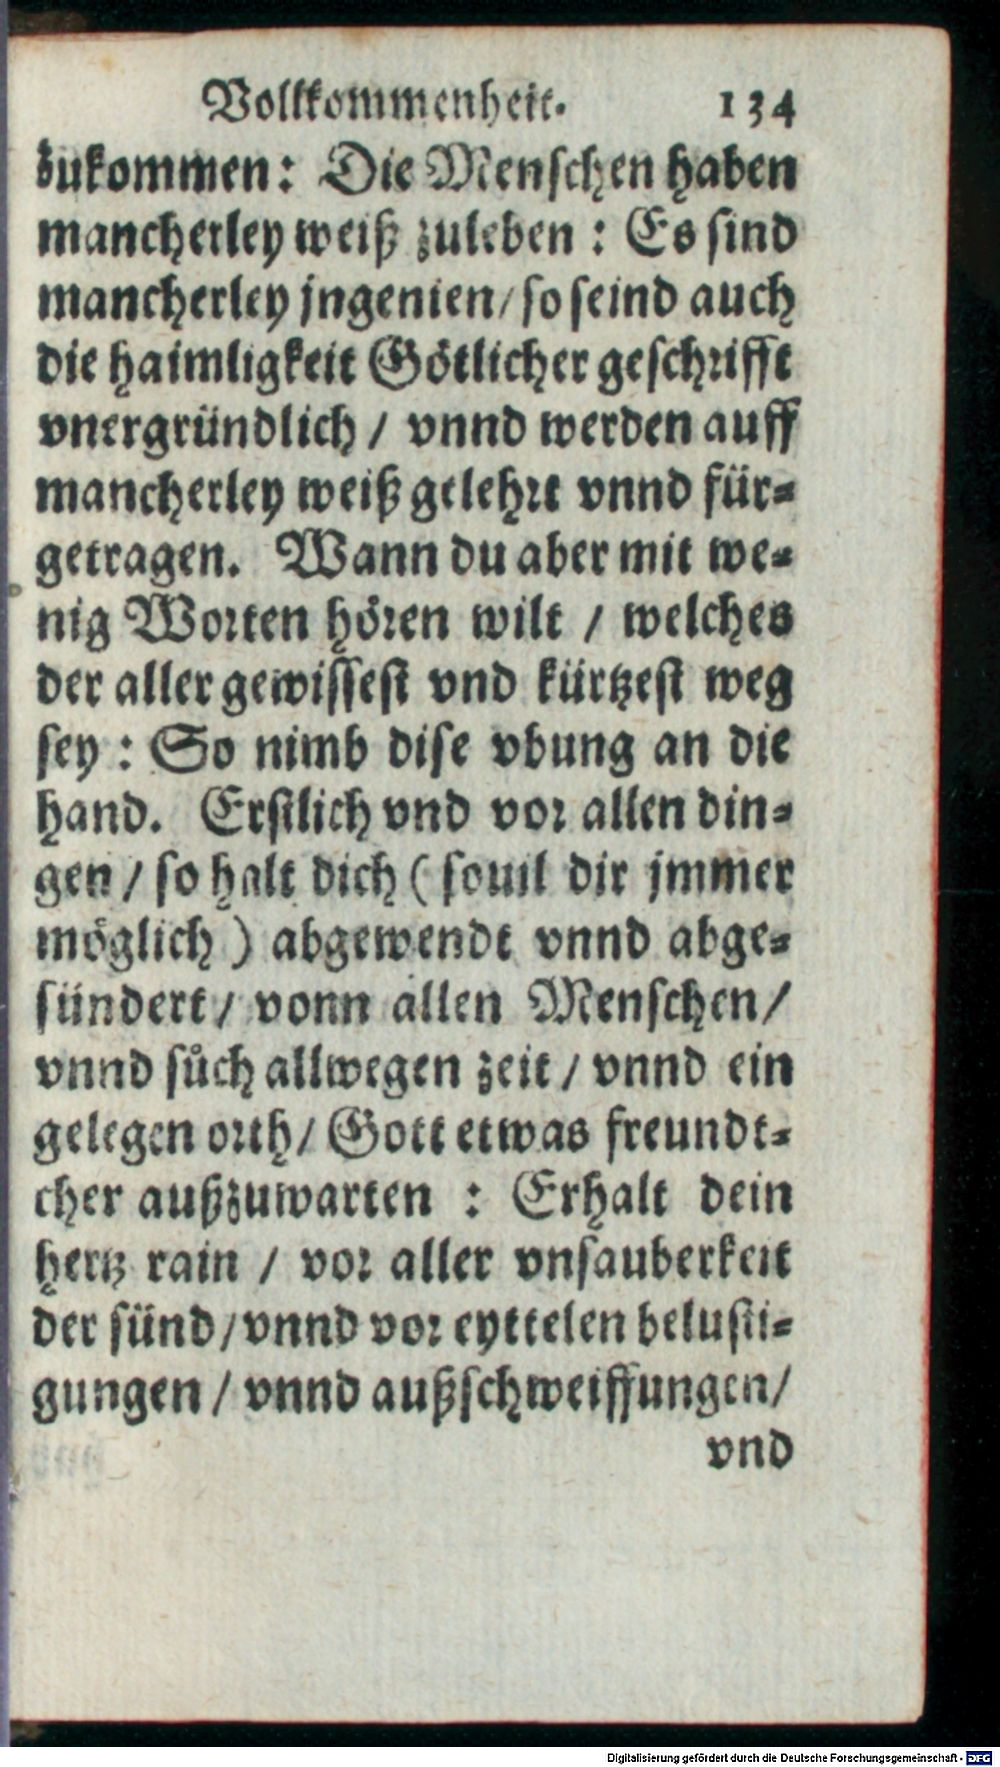 Vollkommenheit. 134
zukommen: Die Menschen haben
mancherley weiß zuleben : Es sind
mancherley jngenien/ so seind auch
die haimligkeit Götlicher geschrifft
vnergründlich / vnnd werden auff
mancherley weiß gelehrt vnnd für-
getragen. Wann du aber mit we-
nig Worten hören wilt / welches
der aller gewissest vnd kürtzest weg
sey : So nimb dise vbung an die
hand. Erstlich vnd vor allen din-
gen / so halt dich ( souil dir jmmer
möglich ) abgewendt vnnd abge-
sündert / vonn allen Menschen /
vnnd sůch allwegen zeit / vnnd ein
gelegen orth / Gott etwas freundt-
cher außzuwarten : Erhalt dein
hertz rain / vor aller vnsauberkeit
der sünd / vnnd vor eyttelen belusti-
gungen / vnnd außschweiffungen /
vnd
Digitalisierung gefördert durch die Deutsche Forschungsgemeinschaft - DFG